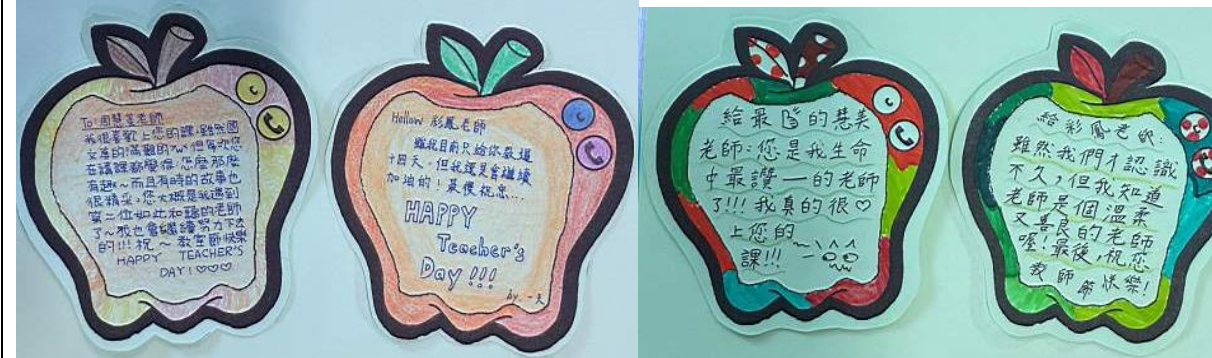 To:周慧美老師
我很喜歡上您的課,雖然國
文真的滿難的TWT,但每次您
在講課都覺得,怎麼那麼
有趣~而且有時的故事也
很精采,您大概是我遇到
第二位如此和藹的老師
了~我也會繼續努力下去
的!!!祝~教師節快樂
HAPPY TEACHER'S
DAY!♡♡♡
Hellow 彩鳳老師
雖我目前只給你教過
十四天,但我還是會繼續
加油的!最後祝您...
HAPPY
Teacher's
Day!!!
by.一天
給最 的慧美
老師:您是我生命
中最讚一的老師
了!!!我真的很♡
上您的
課!!!
給彩鳳老師:
雖然我們才認識
不久,但我知道
老師是個溫柔
又善良的老師
喔!最後,祝您
教師節快樂!